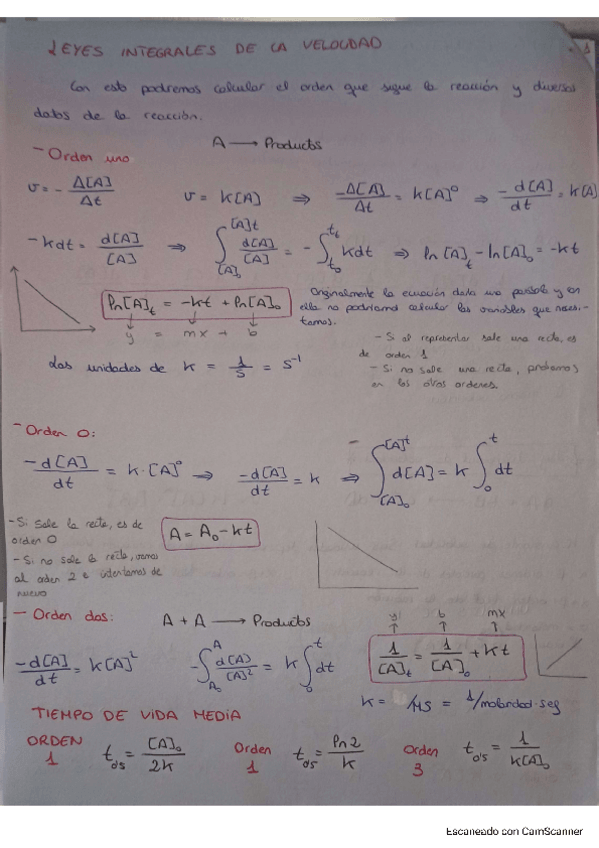 LEYES INTEGRALES DE LA VELOCIDAD
Con esto podremos calcular el orden que sigue la reacción y diversos
datos de la reacción.
A ⟶ Productos
- Orden uno
v = - Δ[A]/Δt    v = K[A] ⇒ -Δ[A]/Δt = K[A]⁰ ⇒ -d[A]/dt = K[A]
-Kdt = d[A]/[A] ⇒ ∫_{[A]₀}^{[A]t} d[A]/[A] = - ∫_{t₀}^{t_t} Kdt ⇒ ln[A]_t - ln[A]₀ = -kt
ln[A]_t = -kt + ln[A]₀
y = mx + b
Originalmente la ecuación daba una parábola y en
ella no podríamos calcular las variables que neces-
itamos.
- Si al representar sale una recta, es
de orden 1
- Si no sale una recta, probamos
en los otros ordenes.
Las unidades de K = 1/s = s⁻¹
- Orden 0:
-d[A]/dt = K·[A]⁰ ⇒ -d[A]/dt = K ⇒ -∫_{[A]₀}^{[A]t} d[A] = K ∫_0^t dt
- Si sale la recta, es de
orden 0
- Si no sale la recta, vamos
al orden 2 e intentamos de
nuevo
A = A₀ - Kt
- Orden dos:    A + A ⟶ Productos
y    b    mx
-d[A]/dt = K[A]²    -∫_{A₀}^{A} d[A]/[A]² = K ∫_0^t dt    1/[A]_t = 1/[A]₀ + Kt
K = 1/MS = 1/molaridad·seg
TIEMPO DE VIDA MEDIA
ORDEN 1    t₀'₅ = [A]₀/2K    Orden 1    t₀'₅ = ln2/K    Orden 3    t₀'₅ = 1/K[A]₀
Escaneado con CamScanner